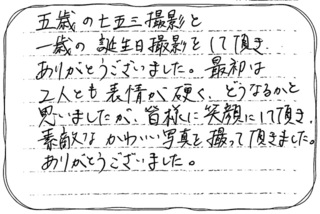 五歳の七五三撮影と
一歳の誕生日撮影をして頂き
ありがとうございました。最初は
2人とも表情が硬く、どうなるかと
思いましたが、皆様に笑顔にして頂き、
素敵な かわいい写真を撮って頂きました。
ありがとうございました。